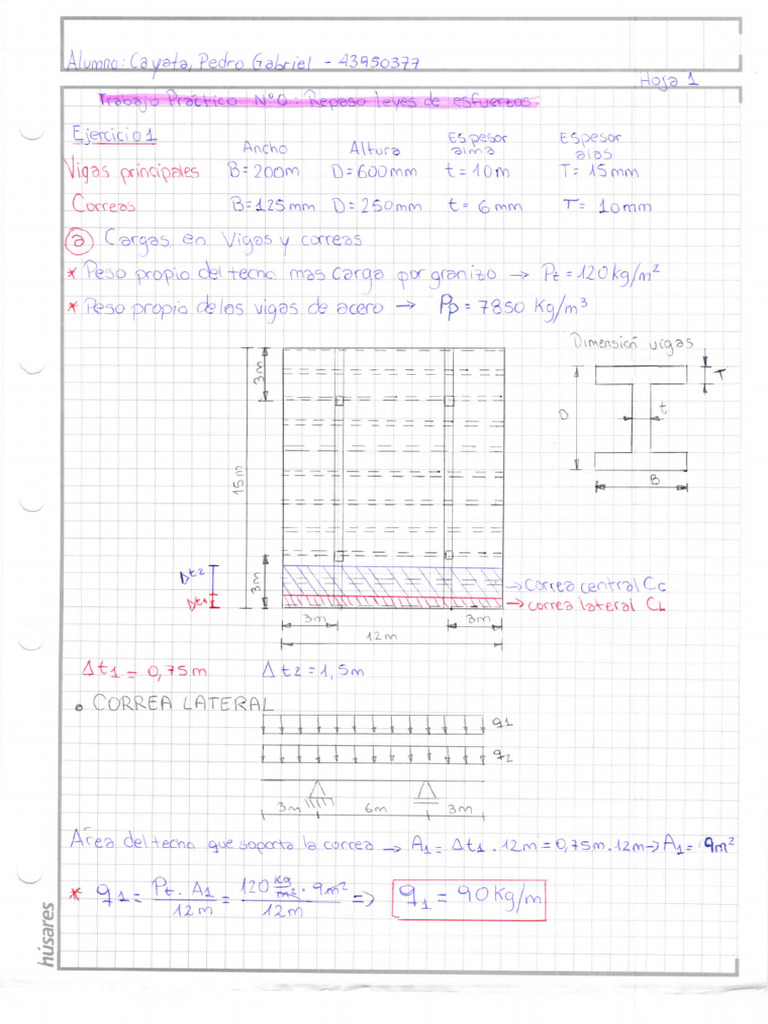 Alumno: Cayata, Pedro Gabriel - 43950377
Hoja 1
Trabajo Práctico N°0: Repaso leyes de esfuerzos.
Ejercicio 1
Ancho Altura Espesor alma Espesor alas
Vigas principales B=200m D=600mm t=10m T=15mm
Correas B=125mm D=250mm t=6mm T=10mm
a Cargas en Vigas y correas
* Peso propio del techo mas carga por granizo → Pt=120kg/m²
* Peso propio de las vigas de acero → Pp=7850 Kg/m³
Dimensión vigas
3m
T
D
t
15m
B
Δt2
3m
→ Correa central Cc
Δt1
→ correa lateral CL
3m 3m
12m
Δt1=0,75m Δt2=1,5m
• CORREA LATERAL
q1
q2
3m 6m 3m
Area del techo que soporta la correa → A1=Δt1.12m=0,75m.12m→A1=9m²
* q1=Pt.A1/12m=120 kg/m².9m²/12m => q1=90Kg/m
húsares